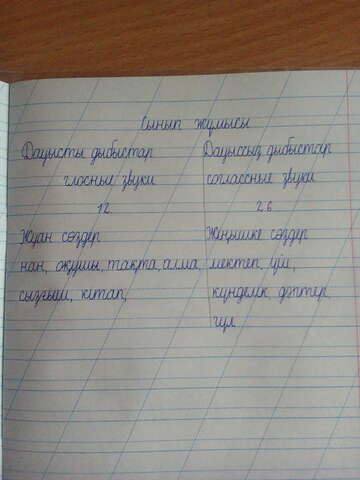 Сынып жұмысы
Дауысты дыбыстар Дауыссыз дыбыстар
гласные звуки согласные звуки
12 26
Жуан сөздер Жіңішке сөздер
нан, оқушы, тақта, алма, мектеп, үй,
сызғыш, кітап, күнделік, дәптер,
гүл